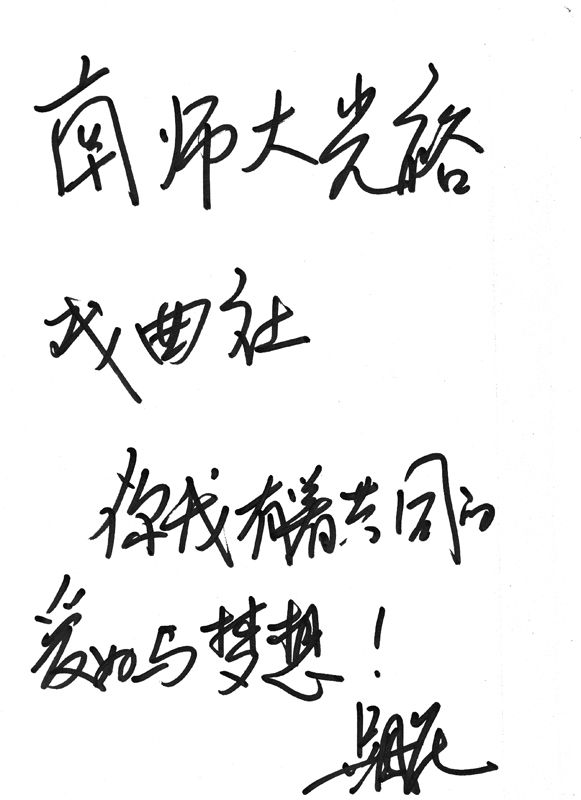 南师大光裕
戏曲社
你我有着共同的
爱好与梦想！